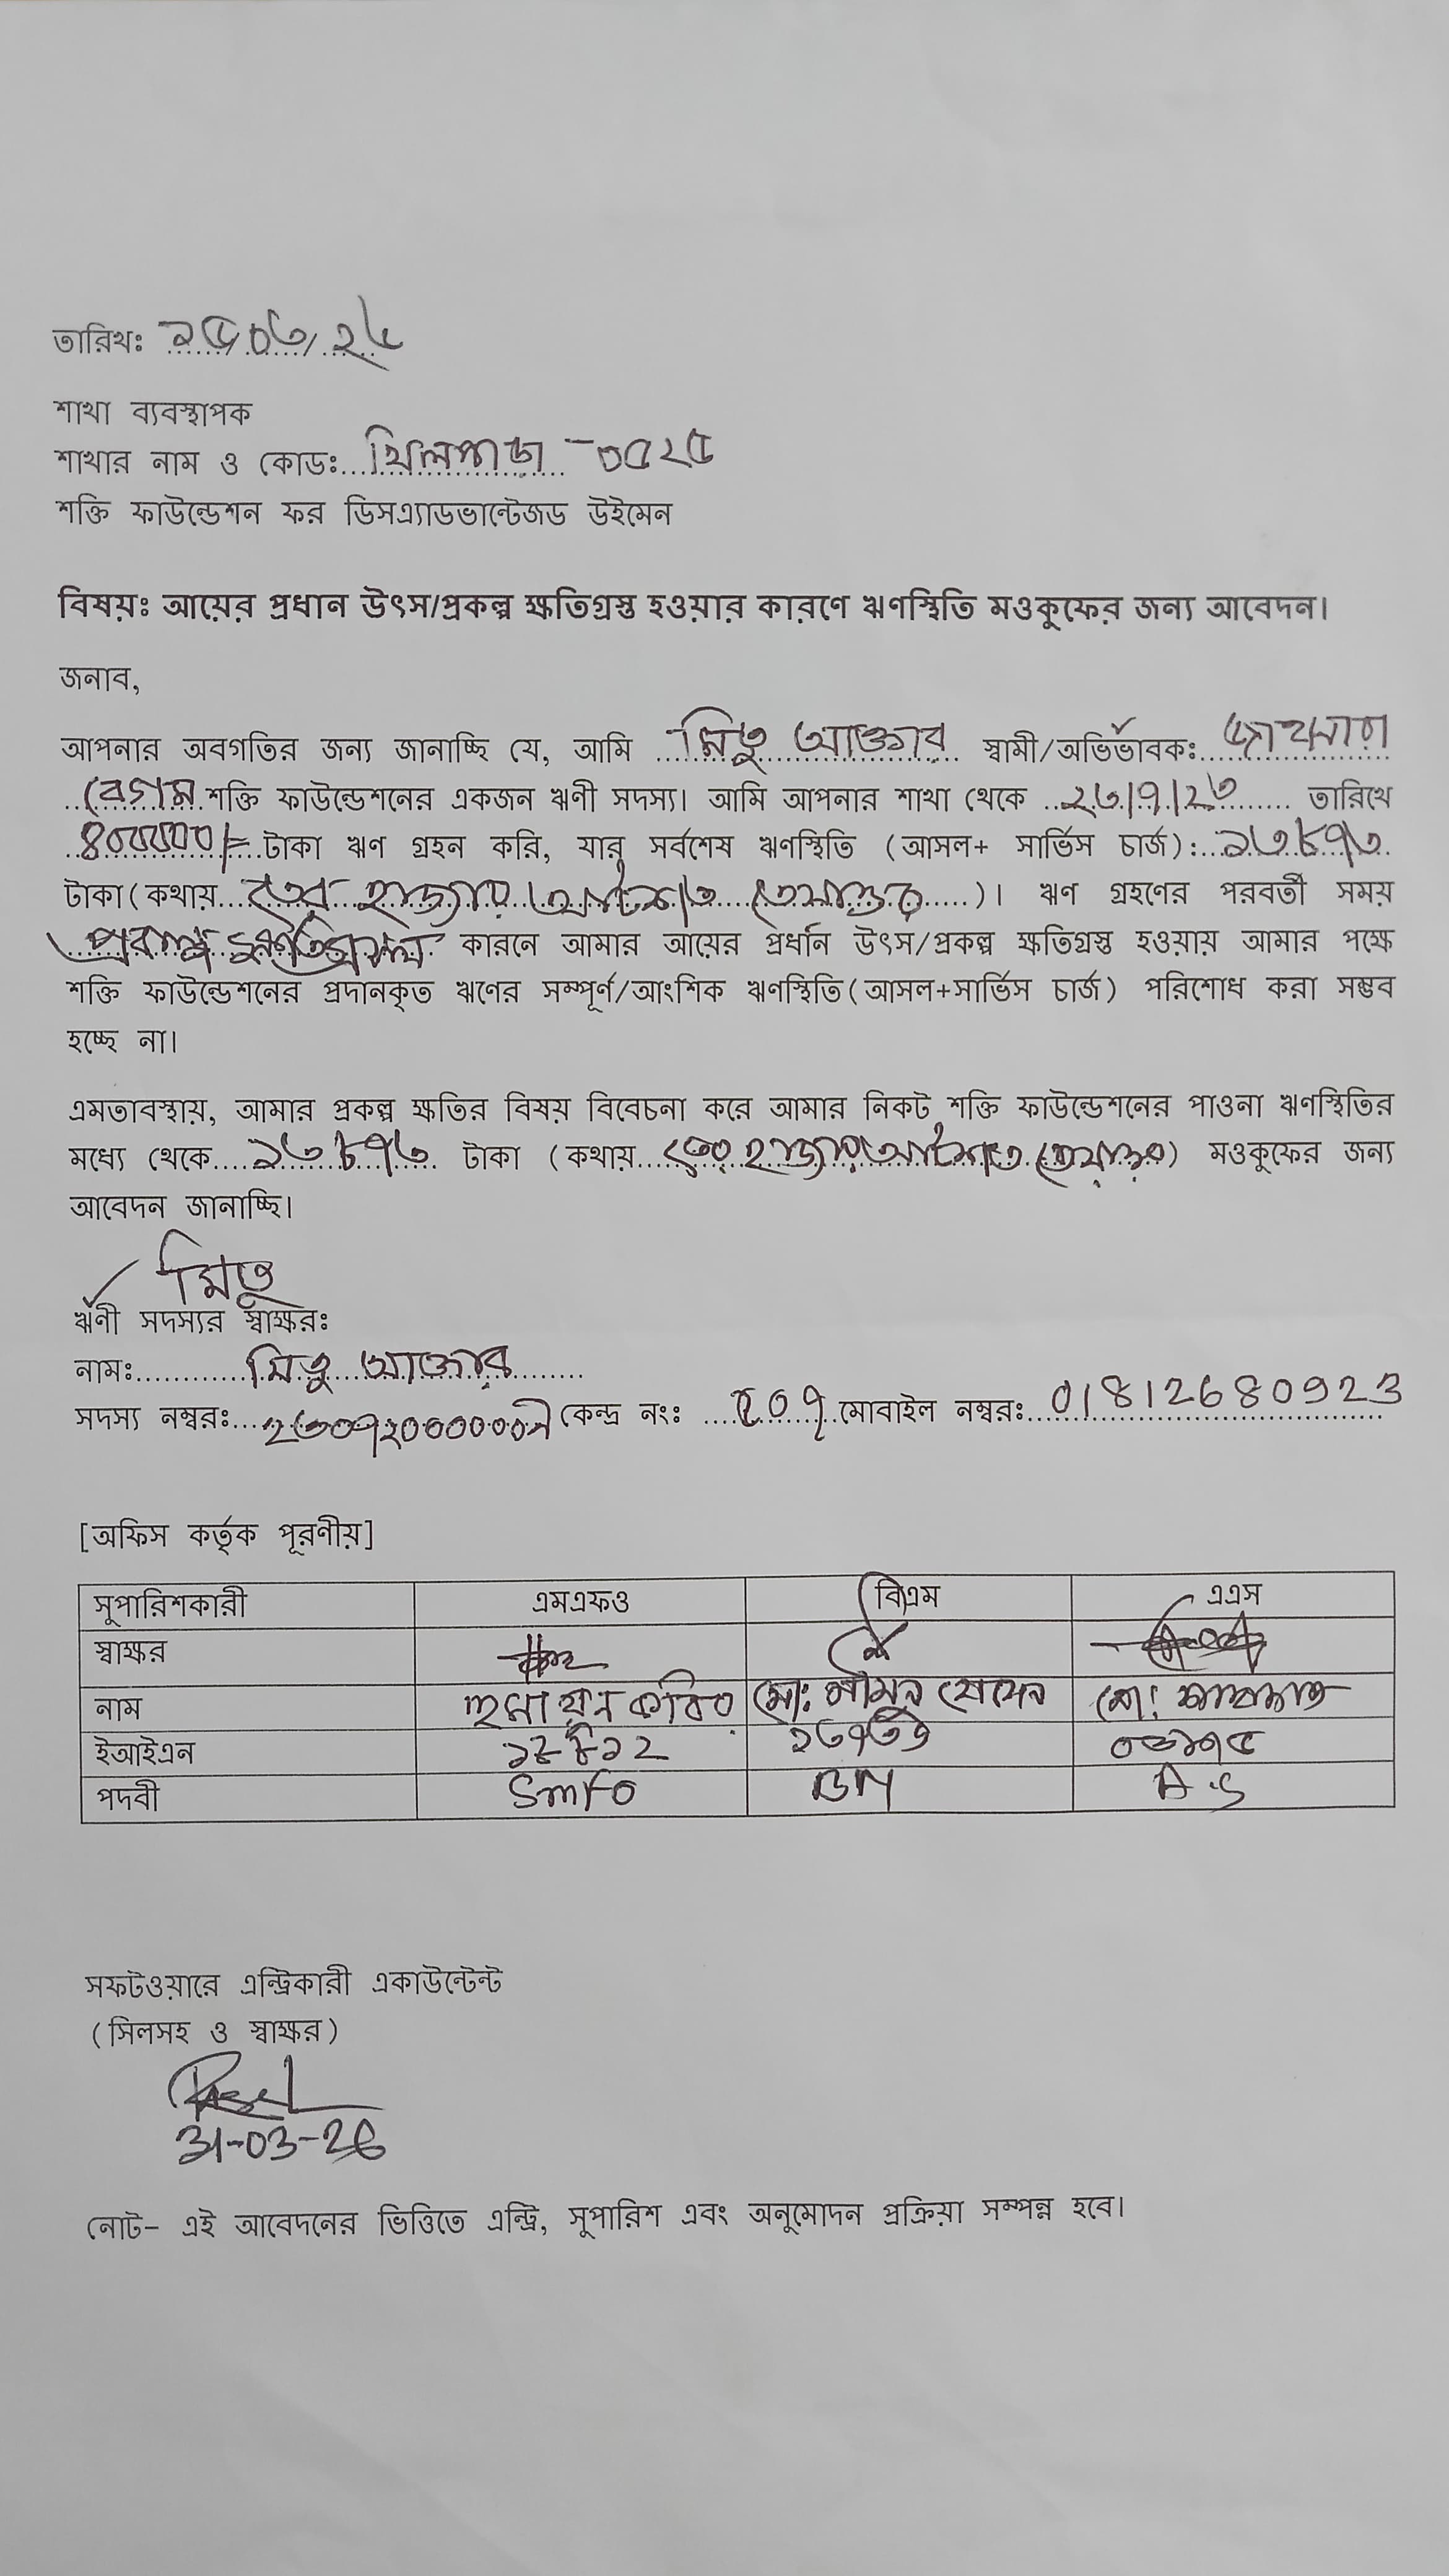 তারিখঃ ২৫/০৩/২৬
শাখা ব্যবস্থাপক
শাখার নাম ও কোডঃ... খিলপাড়া -০৫২৫
শক্তি ফাউন্ডেশন ফর ডিসএ্যাডভান্টেজড উইমেন
বিষয়ঃ আয়ের প্রধান উৎস/প্রকল্প ক্ষতিগ্রস্ত হওয়ার কারণে ঋণস্থিতি মওকুফের জন্য আবেদন।
জনাব,
আপনার অবগতির জন্য জানাচ্ছি যে, আমি মিতু আক্তার স্বামী/অভির্ভাবকঃ
বেগম শক্তি ফাউন্ডেশনের একজন ঋণী সদস্য। আমি আপনার শাখা থেকে ২৩/৭/২৩ তারিখে
৪০০০০০/= টাকা ঋণ গ্রহন করি, যার সর্বশেষ ঋণস্থিতি (আসল+ সার্ভিস চার্জ): ১৩৮৭৩
টাকা (কথায় তের হাজার আটশত তেয়াত্তর )। ঋণ গ্রহণের পরবর্তী সময়
প্রকল্প ক্ষতিগ্রস্থ কারনে আমার আয়ের প্রধান উৎস/প্রকল্প ক্ষতিগ্রস্ত হওয়ায় আমার পক্ষে
শক্তি ফাউন্ডেশনের প্রদানকৃত ঋণের সম্পূর্ণ/আংশিক ঋণস্থিতি(আসল+সার্ভিস চার্জ) পরিশোধ করা সম্ভব
হচ্ছে না।
এমতাবস্থায়, আমার প্রকল্প ক্ষতির বিষয় বিবেচনা করে আমার নিকট শক্তি ফাউন্ডেশনের পাওনা ঋণস্থিতির
মধ্যে থেকে.... ১৩৮৭৩ টাকা (কথায় তের হাজার আটশত তেয়াত্তর) মওকুফের জন্য
আবেদন জানাচ্ছি।
মিতু
ঋণী সদস্যর স্বাক্ষরঃ
নামঃ মিতু আক্তার
সদস্য নম্বরঃ কেন্দ্র নংঃ ২০৭ মোবাইল নম্বরঃ 01812680923
[অফিস কর্তৃক পূরণীয়]
সুপারিশকারী এমএফও বিএম এএস
স্বাক্ষর
নাম হুমায়ুন কবির মোঃ মোঃ
ইআইএন
পদবী SmFo BM A.S
সফটওয়ারে এন্ট্রিকারী একাউন্টেন্ট
(সিলসহ ও স্বাক্ষর)
31-03-26
নোট- এই আবেদনের ভিত্তিতে এন্ট্রি, সুপারিশ এবং অনুমোদন প্রক্রিয়া সম্পন্ন হবে।